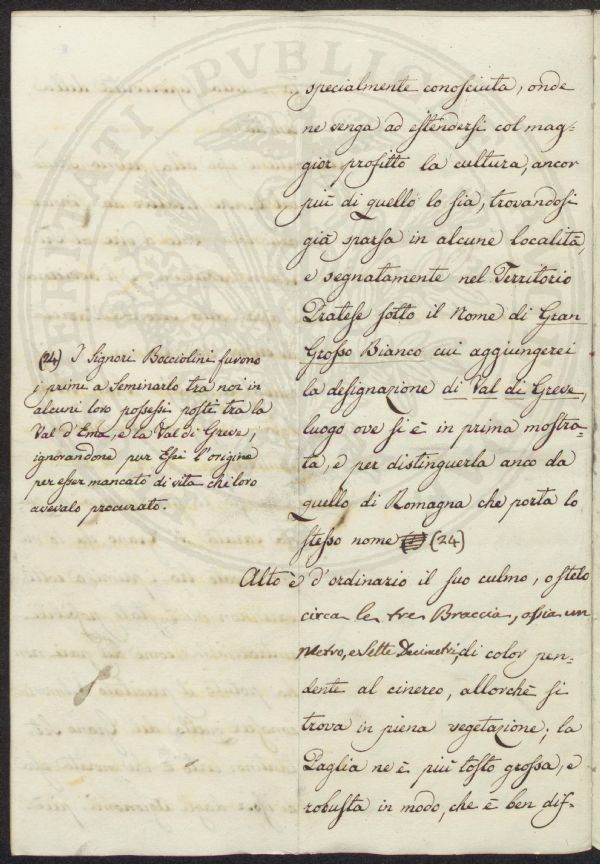 specialmente conosciuta, onde
ne venga ad estendersi col mag=
gior profitto la cultura, ancor
più di quello lo sia, trovandosi
già sparsa in alcune località,
e segnatamente nel Territorio
Pratese sotto il Nome di Gran
Grosso Bianco cui aggiungerei
la designazione di Val di Greve,
luogo ove si è in prima mostra=
ta, e per distinguerla anco da
quello di Romagna che porta lo
stesso nome (24)
Alto è d'ordinario il suo culmo, o stelo
circa le tre Braccia, ossia un
Metro, e Sette Decimetri, di color pen=
dente al cinereo, allorchè si
trova in piena vegetazione; la
Paglia ne è più tosto grossa, e
robusta in modo, che è ben dif=
(24) I Signori Bocciolini furono
i primi a Seminarlo tra noi in
alcuni loro possessi posti tra la
Val d'Ema, e la Val di Greve,
ignorandone pur Essi l'origine
per esser mancato di vita chi loro
avevalo procurato.
PVBLICO